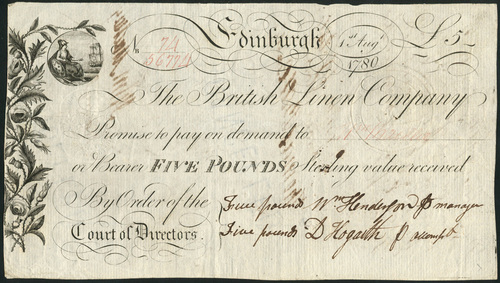 No 74 Edinburgh 1st Augt £5
1780
The British Linen Company
Promise to pay on demand to
or Bearer FIVE POUNDS Sterling value received
By Order of the Five pounds Wm Henderson p manager
Court of Directors. Five pounds D Hogarth p accompt